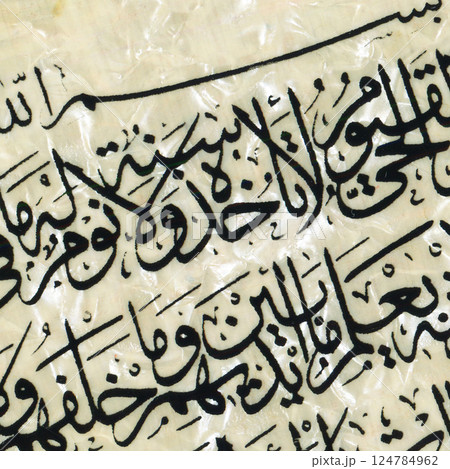 بِسْمِ اللّٰه
الْحَيُّ الْقَيُّومُ لَا تَأْخُذُهُ سِنَةٌ وَلَا نَوْمٌ لَهُ مَا
يَعْلَمُ مَا بَيْنَ أَيْدِيهِمْ وَمَا خَلْفَهُمْ
pixtastock.com - 124784962